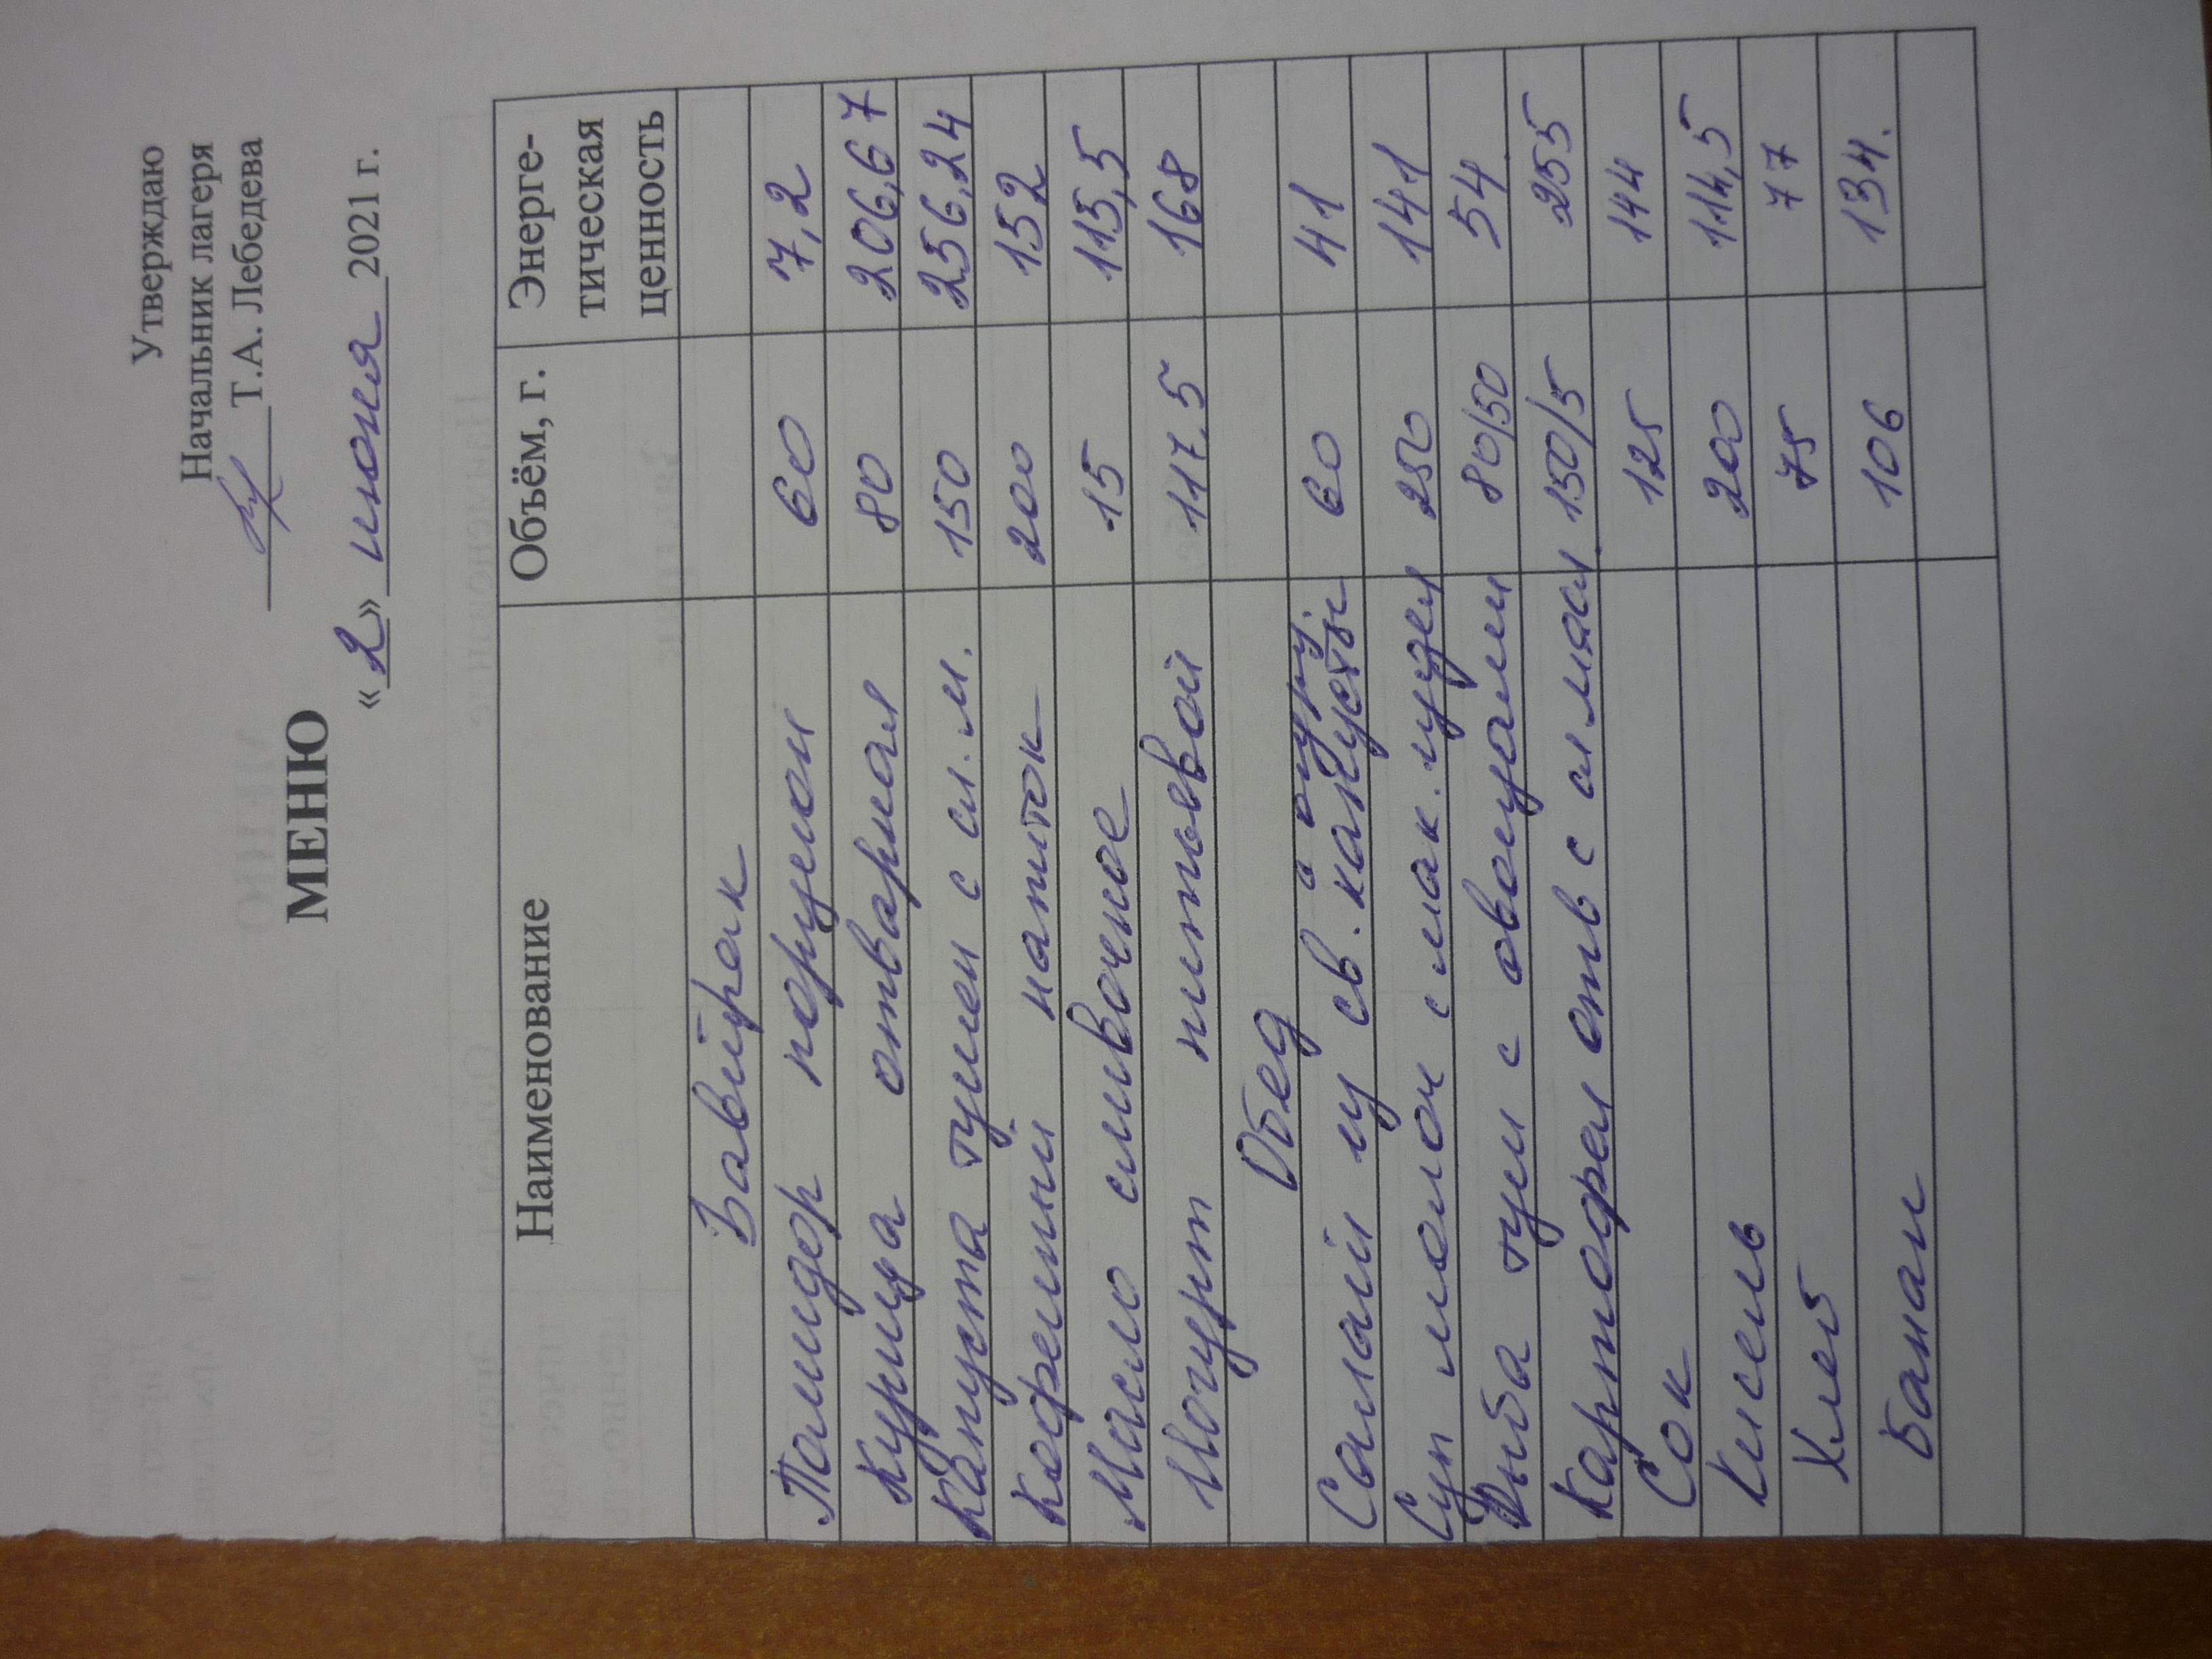 Утверждаю
Начальник лагеря
Т.А. Лебедева
МЕНЮ
«2» июня 2021 г.
Наименование Объём, г. Энерге-
тическая
ценность
Завтрак
Помидор порцион 60 7,2
Курица отварная 80 206,67
Капуста тушен с сл.м. 150 256,24
Кофейный напиток 200 152
Масло сливочное 15 115,5
Йогурт питьевой 117,5 168
Обед
с огур.
Салат из св. капусты 60 41
Суп молоч с мак. изделиями 250 141
Рыба туш с овощами 80/50 54
Картофел отв с сл маслом 150/5 255
Сок 125 144
Кисель 200 114,5
Хлеб 75 77
Банан 106 134.